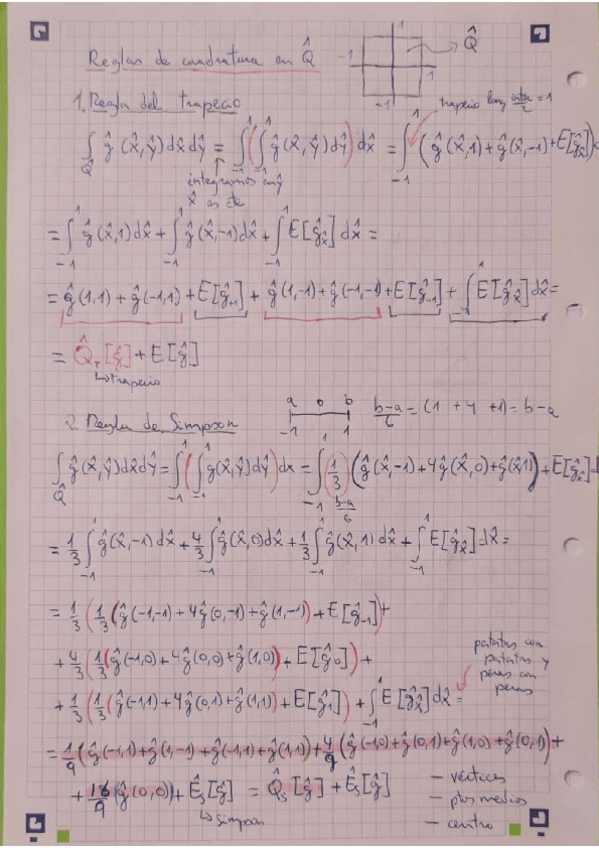 Reglas de cuadratura en Q̂
1
-1 1
-1
→ Q̂
1. Regla del trapecio
trapecio long inter/2 = 1
∫_Q̂ ĝ(x̂,ŷ)dx̂dŷ = ∫_{-1}^{1}(∫_{-1}^{1} ĝ(x̂,ŷ)dŷ)dx̂ = ∫_{-1}^{1}(ĝ(x̂,1)+ĝ(x̂,-1)+E[ĝ_x̂])d
integramos en ŷ
x̂ es cte
= ∫_{-1}^{1} ĝ(x̂,1)dx̂ + ∫_{-1}^{1} ĝ(x̂,-1)dx̂ + ∫_{-1}^{1} E[ĝ_x̂]dx̂ =
= ĝ(1,1)+ĝ(-1,1)+E[ĝ_{+1}]+ĝ(1,-1)+ĝ(-1,-1)+E[ĝ_{-1}]+∫_{-1}^{1} E[ĝ_x̂]dx̂ =
= Q̂_T[ĝ]+E[ĝ]
↳trapecio
2. Regla de Simpson
a 0 b
-1 1
b-a/6 = (1 + 4 + 1) = b-a
∫_Q̂ ĝ(x̂,ŷ)dx̂dŷ = ∫_{-1}^{1}(∫_{-1}^{1} ĝ(x̂,ŷ)dŷ)dx = ∫_{-1}^{1} 1/3 (ĝ(x̂,-1)+4ĝ(x̂,0)+ĝ(x̂,1))+E[ĝ_x̂]d
b-a/6
= 1/3 ∫_{-1}^{1} ĝ(x̂,-1)dx̂ + 4/3 ∫_{-1}^{1} ĝ(x̂,0)dx̂ + 1/3 ∫_{-1}^{1} ĝ(x̂,1)dx̂ + ∫_{-1}^{1} E[ĝ_x̂]dx̂ =
= 1/3 (1/3 (ĝ(-1,-1)+4ĝ(0,-1)+ĝ(1,-1))+E[ĝ_{-1}])+
+ 4/3 (1/3 (ĝ(-1,0)+4ĝ(0,0)+ĝ(1,0))+E[ĝ_0])+
+ 1/3 (1/3 (ĝ(-1,1)+4ĝ(0,1)+ĝ(1,1))+E[ĝ_1])+∫_{-1}^{1} E[ĝ_x̂]dx̂ =
patatas con
patatas y
peras con
peras
= 1/9 (ĝ(-1,1)+ĝ(1,-1)+ĝ(-1,1)+ĝ(1,1))+4/9 (ĝ(-1,0)+ĝ(0,1)+ĝ(1,0)+ĝ(0,1))+
+ 16/9 (ĝ(0,0))+Ê_S[ĝ] = Q̂_S[ĝ]+Ê_S[ĝ]
↳ Simpson
- vértices
- ptos medios
- centro